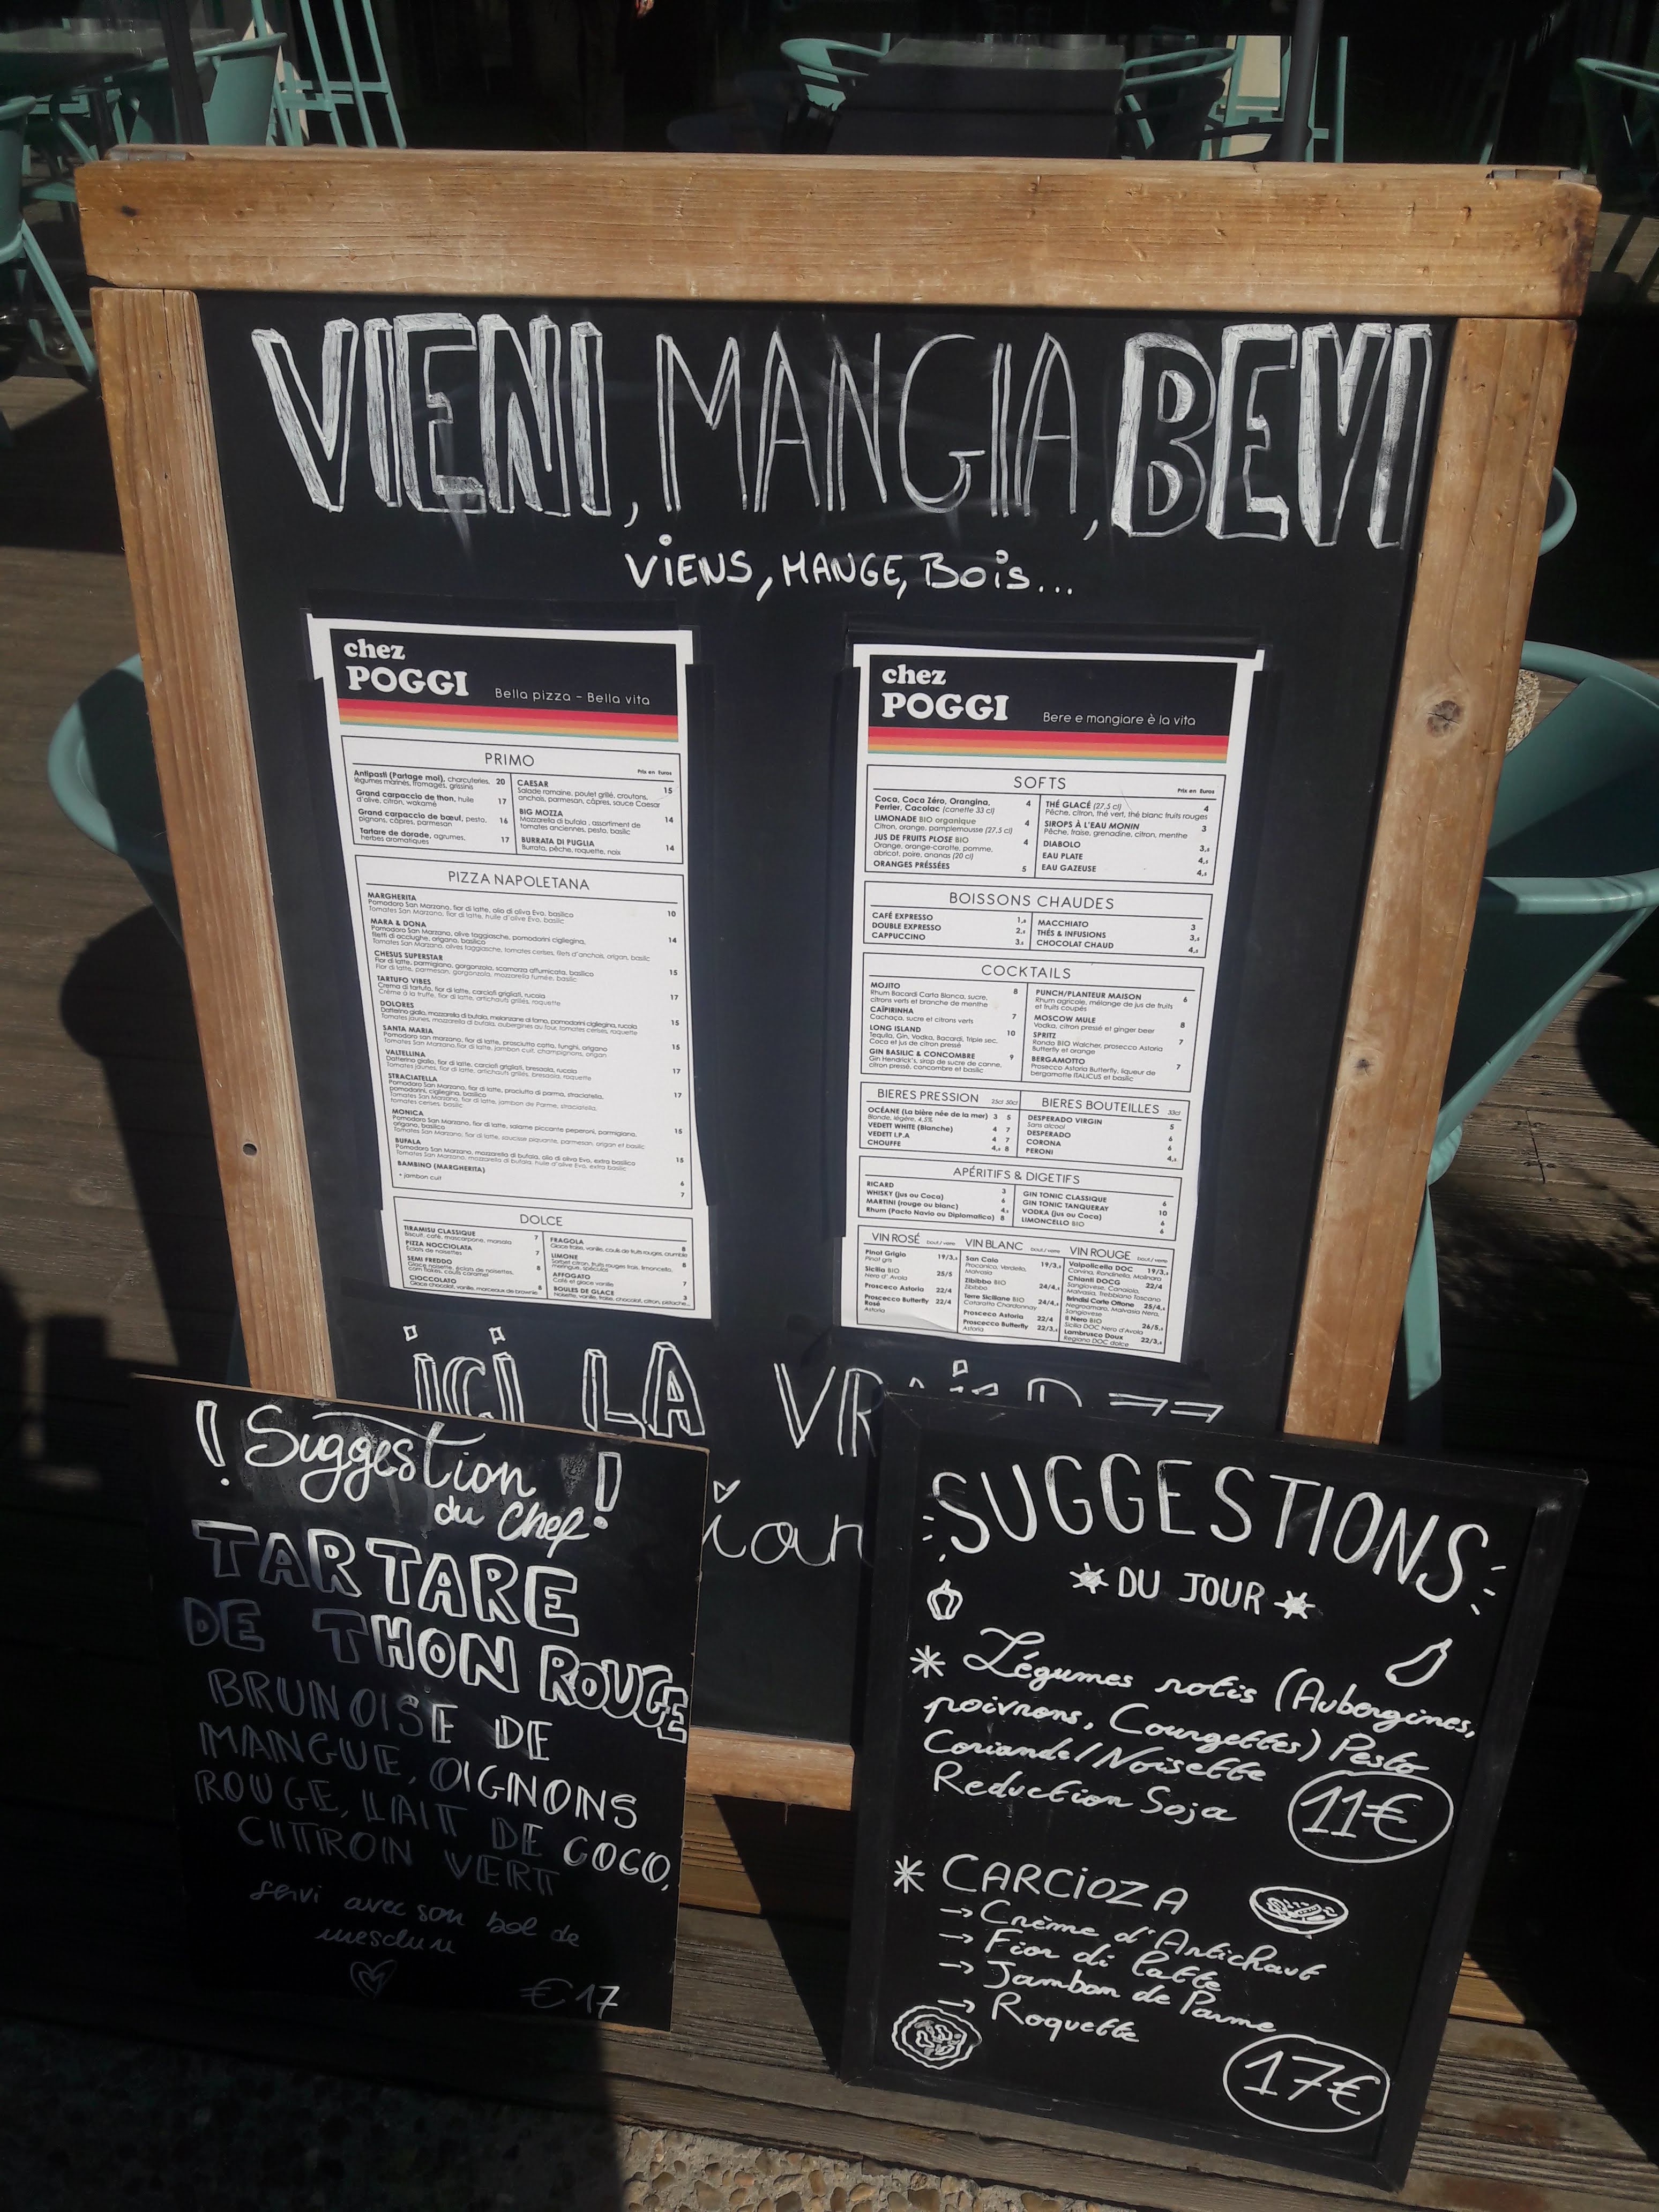 VIENI, MANGIA, BEVI
VIENS, MANGE, BOIS...
chez
POGGI
Bella pizza - Bella vita
PRIMO
Prix en Euros
Antipasti (Partage moi), charcuteries, 20
légumes marinés, fromages, grissinis
Grand carpaccio de thon, huile 17
d'olive, citron, wakamé
Grand carpaccio de bœuf, pesto, 16
pignons, câpres, parmesan
Tartare de dorade, agrumes, 17
herbes aromatiques
CAESAR 15
Salade romaine, poulet grillé, croutons,
anchois, parmesan, câpres, sauce Caesar
BIG MOZZA 14
Mozzarella di bufala, assortiment de
tomates anciennes, pesto, basilic
BURRATA DI PUGLIA 14
Burrata, pêche, roquette, noix
PIZZA NAPOLETANA
MARGHERITA 10
Pomodoro San Marzano, fior di latte, olio di oliva Evo, basilico
Tomates San Marzano, fior di latte, huile d'olive Evo, basilic
MARA & DONA 14
Pomodoro San Marzano, olive taggiasche, pomodorini cigliegina,
filetti di acciughe, origano, basilico
Tomates San Marzano, olives taggiasche, tomates cerises, filets d'anchois, origan, basilic
CHESUS SUPERSTAR 15
Fior di latte, parmigiano, gorgonzola, scamorza affumicata, basilico
Fior di latte, parmesan, gorgonzola, mozzarella fumée, basilic
TARTUFO VIBES 17
Crema di tartufo, fior di latte, carciofi grigliati, rucola
Crème à la truffe, fior di latte, artichauts grillés, roquette
DOLORES 15
Datterino giallo, mozzarella di bufala, melanzane al forno, pomodorini cigliegina, rucola
Tomates jaunes, mozzarella di bufala, aubergines au four, tomates cerises, roquette
SANTA MARIA 15
Pomodoro san marzano, fior di latte, prosciutto cotto, funghi, origano
Tomates San Marzano, fior di latte, jambon cuit, champignons, origan
VALTELLINA 17
Datterino giallo, fior di latte, carciofi grigliati, bresaola, rucola
Tomates jaunes, fior di latte, artichauts grillés, bresaola, roquette
STRACIATELLA 17
Pomodoro San Marzano, fior di latte, prociutto di parma, straciatella,
pomodorini, ciglegina, basilico
Tomates San Marzano, fior di latte, jambon de Parme, straciatella,
tomates cerises, basilic
MONICA 15
Pomodoro San Marzano, fior di latte, salame piccante peperoni, parmigiano,
origano, basilico
Tomates San Marzano, fior di latte, saucisse piquante, parmesan, origan et basilic
BUFALA 15
Pomodoro San Marzano, mozzarella di bufala, olio di oliva Evo, extra basilico
Tomates San Marzano, mozzarella di bufala, huile d'olive Evo, extra basilic
BAMBINO (MARGHERITA) 6
+ jambon cuit 7
DOLCE
TIRAMISU CLASSIQUE 7
Biscuit, café, mascarpone, marsala
PIZZA NOCCIOLATA 7
Éclats de noisettes
SEMI FREDDO 8
Glace noisette, éclats de noisettes,
corn flakes, coulis caramel
CIOCCOLATO 8
Glace chocolat, vanille, morceaux de brownie
FRAGOLA 8
Glace fraise, vanille, coulis de fruits rouges, crumble
LIMONE 8
Sorbet citron, fruits rouges frais, limoncello,
meringue, spéculos
AFFOGATO 7
Café et glace vanille
BOULES DE GLACE 3
Noisette, vanille, fraise, chocolat, citron, pistache...
chez
POGGI
Bere e mangiare è la vita
SOFTS
Prix en Euros
Coca, Coca Zéro, Orangina, 4
Perrier, Cacolac (canette 33 cl)
LIMONADE BIO organique 4
Citron, orange, pamplemousse (27,5 cl)
JUS DE FRUITS PLOSE BIO 4
Orange, orange-carotte, pomme,
abricot, poire, ananas (20 cl)
ORANGES PRÉSSÉES 5
THÉ GLACÉ (27,5 cl) 4
Pêche, citron, thé vert, thé blanc fruits rouges
SIROPS À L'EAU MONIN 3
Pêche, fraise, grenadine, citron, menthe
DIABOLO 3,5
EAU PLATE 4,5
EAU GAZEUSE 4,5
BOISSONS CHAUDES
CAFÉ EXPRESSO 1,8
DOUBLE EXPRESSO
CAPPUCCINO 3,5
MACCHIATO 3
THÉS & INFUSIONS 3,5
CHOCOLAT CHAUD 4,5
COCKTAILS
MOJITO 8
Rhum Bacardi Carta Blanca, sucre,
citrons verts et branche de menthe
CAÏPIRINHA 7
Cachaça, sucre et citrons verts
LONG ISLAND 10
Tequila, Gin, Vodka, Bacardi, Triple sec,
Coca et jus de citron pressé
GIN BASILIC & CONCOMBRE 9
Gin Hendrick's, sirop de sucre de canne,
citron pressé, concombre et basilic
PUNCH/PLANTEUR MAISON 6
Rhum agricole, mélange de jus de fruits
et fruits coupés
MOSCOW MULE 8
Vodka, citron pressé et ginger beer
SPRITZ 7
Rondo BIO Walcher, prosecco Astoria
Butterfly et orange
BERGAMOTTO 7
Prosecco Astoria Butterfly, liqueur de
bergamotte ITALICUS et basilic
BIERES PRESSION 25cl 50cl
OCÉANE (La bière née de la mer) 3 5
Blonde, légère, 4,5%
VEDETT WHITE (Blanche) 4 7
VEDETT I.P.A 4 7
CHOUFFE 4,5 8
BIERES BOUTEILLES 33cl
DESPERADO VIRGIN 5
Sans alcool
DESPERADO 6
CORONA 6
PERONI 4,5
APÉRITIFS & DIGETIFS
RICARD 3
WHISKY (jus ou Coca) 6
MARTINI (rouge ou blanc) 4,5
Rhum (Pacto Navio ou Diplomatico) 8
GIN TONIC CLASSIQUE 6
GIN TONIC TANQUERAY 10
VODKA (jus ou Coca) 6
LIMONCELLO BIO 6
VIN ROSÉ bout./verre
Pinot Grigio 19/3,5
Pinot gris
Sicilia BIO 25/5
Nero d'Avola
Prosceco Astoria 22/4
Proscecco Butterfly 22/4
Rosé
Astoria
VIN BLANC bout./verre
San Calo 19/3,5
Procanico, Verdello,
Malvasia
Zibibbo BIO 24/4,5
Zibibbo
Terre Siciliane BIO 24/4,5
Cataratto Chardonnay
Prosceco Astoria 22/4
Proscecco Butterfly 22/3,5
Astoria
VIN ROUGE bout./verre
Valpolicella DOC 19/3,5
Corvina, Rondinella, Molinara
Chianti DOCG 22/4
Sangiovese, Canaiolo,
Malvasia, Trebbiano Toscano
Brindisi Corte Ottone 25/4,5
Negroamaro, Malvasia Nera,
Sangiovese
Il Nero BIO 26/5,5
Sicilia DOC Nero d'Avola
Lambrusco Doux 22/3,5
Regiano DOC dolce
ici LA
! Suggestion !
du Chef
TARTARE
DE THON ROUGE
BRUNOISE DE
MANGUE, OIGNONS
ROUGE, LAIT DE COCO,
CITRON VERT
servi avec son bol de
mesclun
€17
SUGGESTIONS
DU JOUR
* Légumes rotis (Aubergines,
poivrons, Courgettes) Pesto
Coriande/Noisette
Reduction Soja
11€
* CARCIOZA
→ Crème d'Artichaut
→ Fior di latte
→ Jambon de Parme
→ Roquette
17€